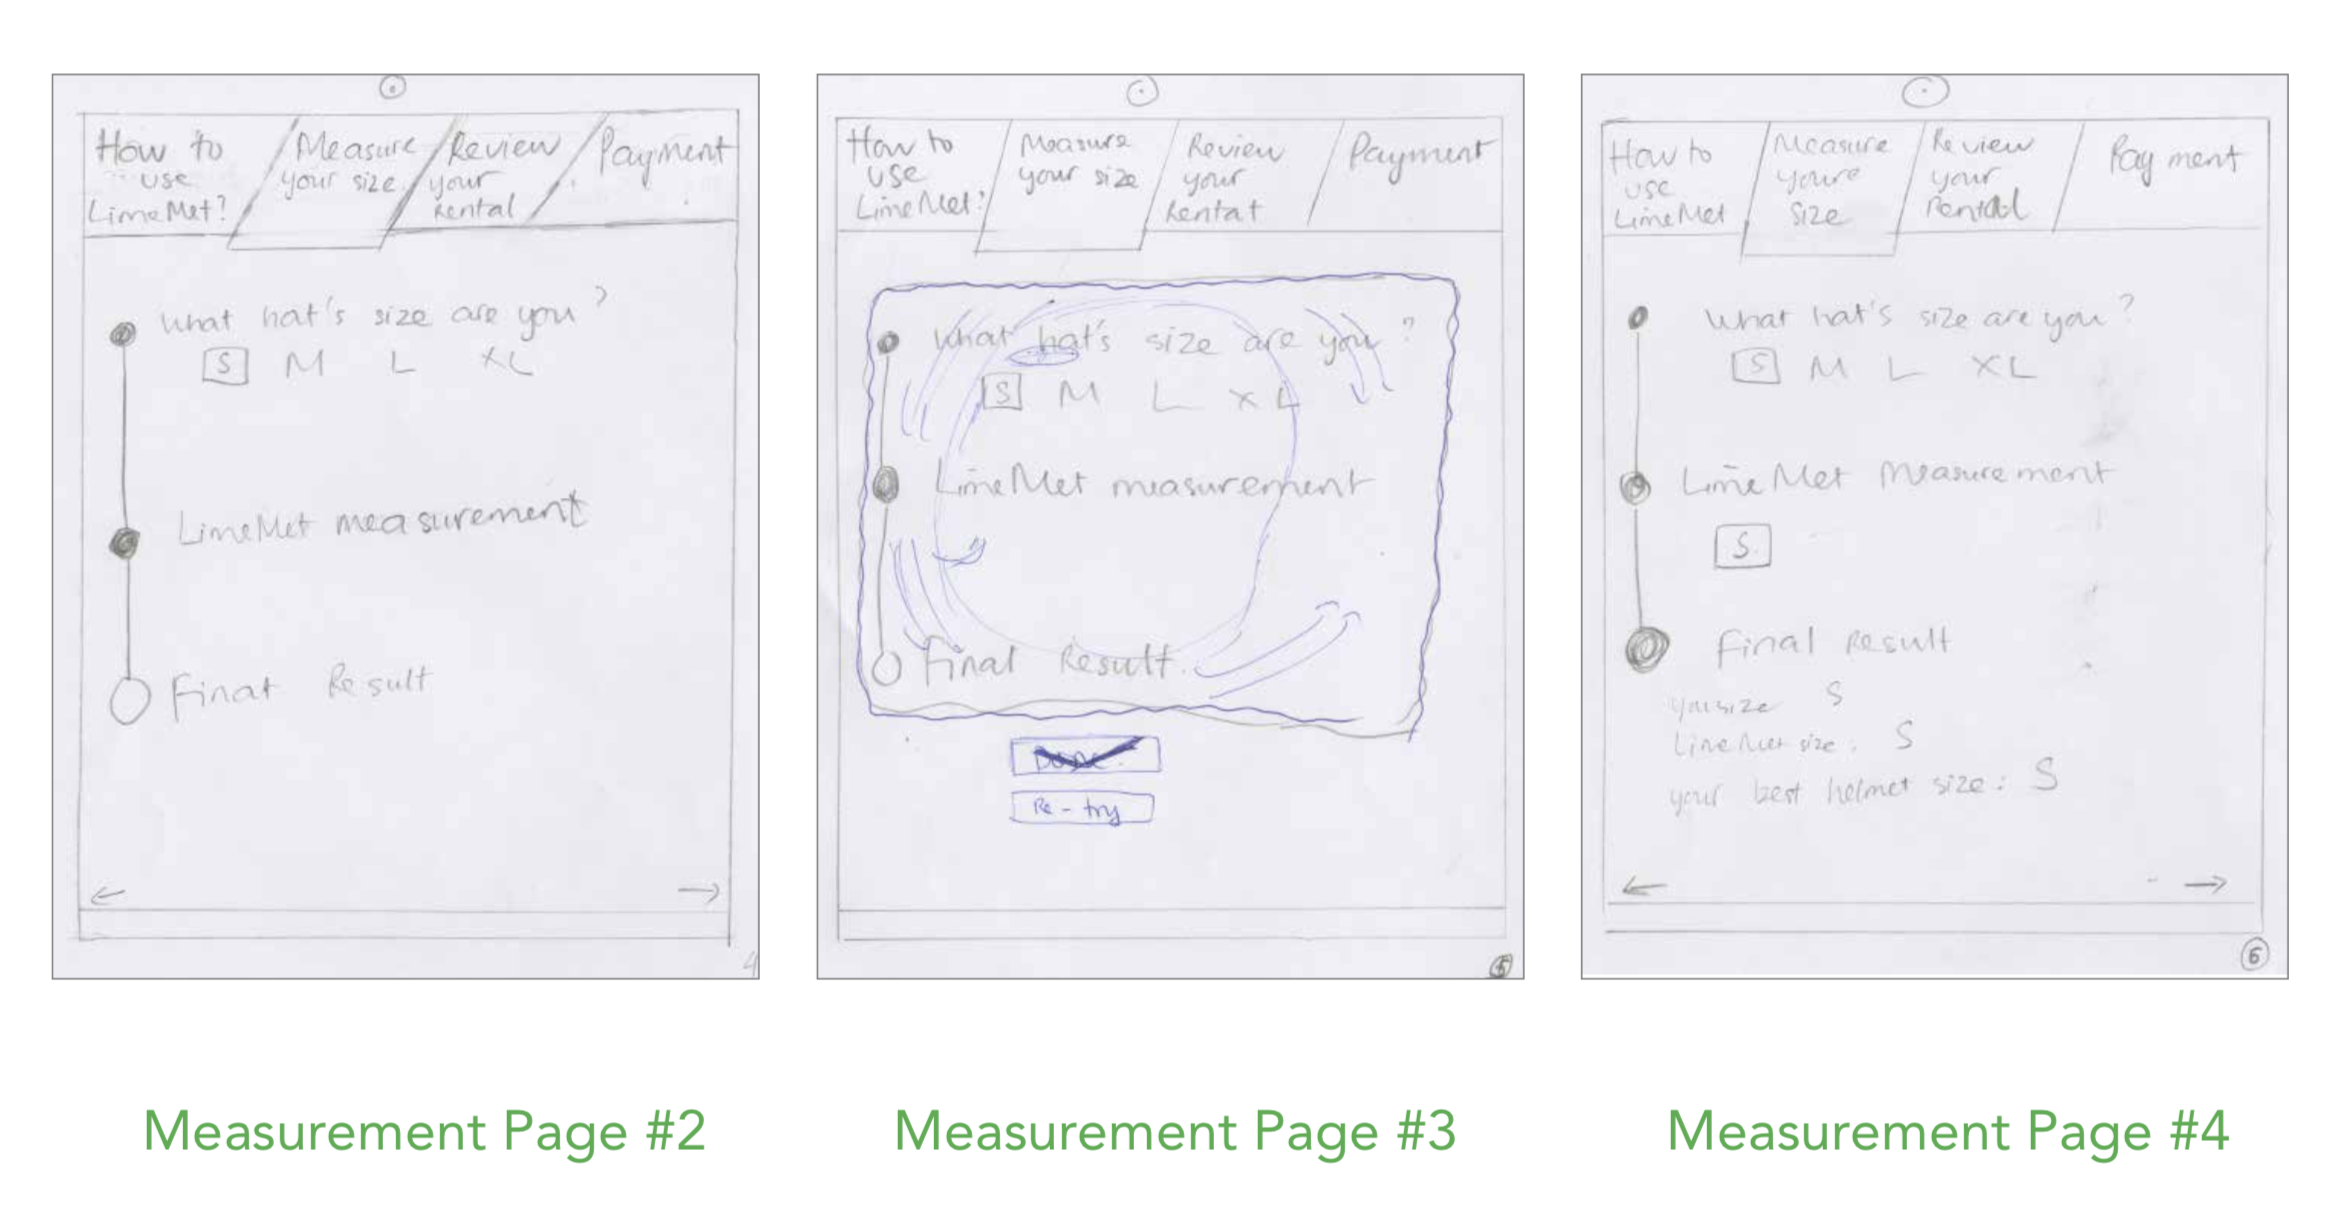 How to
use
LimeMet?
Measure
your size
Review
your
Rental
Payment
What hat's size are you?
S M L XL
LimeMet measurement
Final Result
← →
4
How to
use
LimeMet?
Measure
your size
Review
your
Rental
Payment
What hat's size are you?
S M L XL
LimeMet measurement
Final Result.
Re-try
5
How to
use
LimeMet
Measure
youre
size
Review
your
Rental
Payment
What hat's size are you?
S M L XL
LimeMet Measurement
S
Final Result
your size S
LimeMet size: S
your best helmet size: S
← →
6
Measurement Page #2
Measurement Page #3
Measurement Page #4